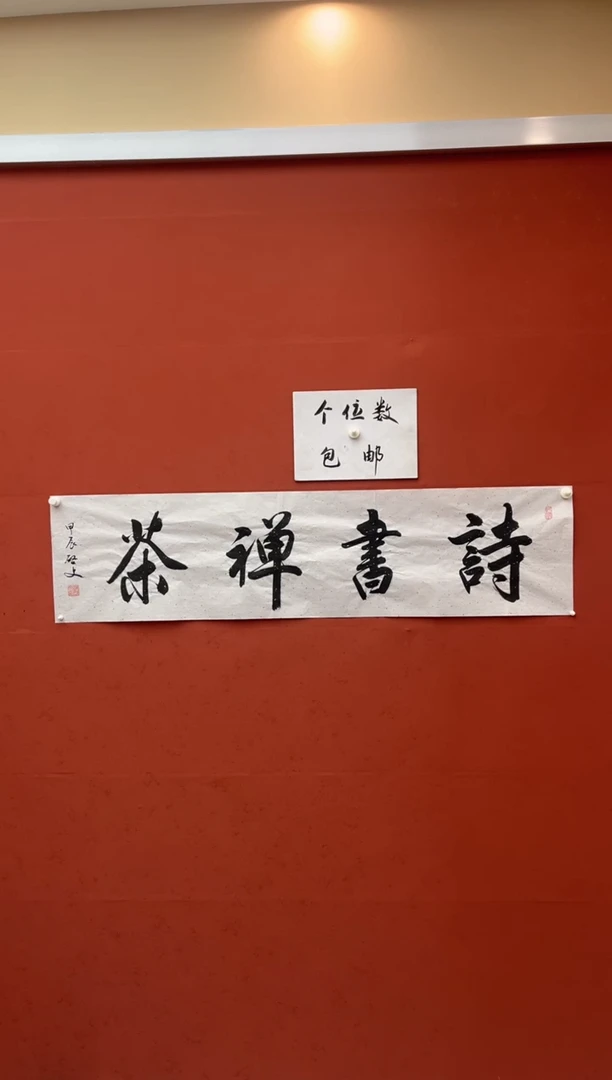 个位数
包邮
詩書禅茶
甲辰啓文